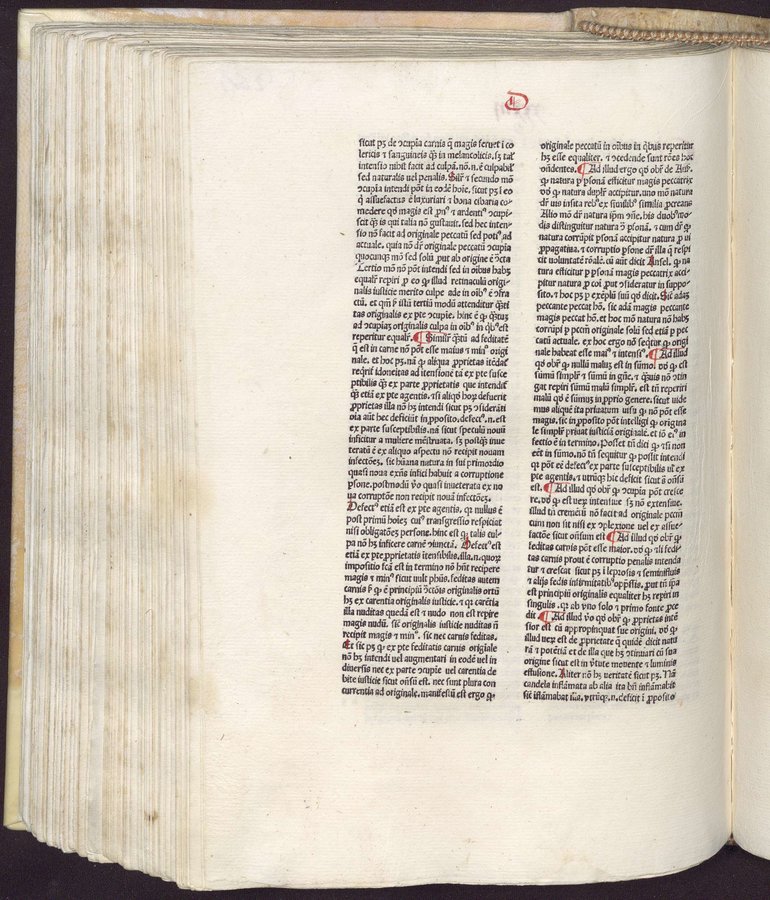 D
sicut pꝫ de ↄcupia carnis q̄ magis feruet ī co
lericis ⁊ sanguineis qꝫ in melancolicis. sꝫ tal'
intensio nihil facit ad culpā. nō.n. ē culpabil'
sed naturalis uel penalis. Silr̄ ⁊ secundo mō
ↄcupia intendi pōt in eodē hoīe. sicut pꝫ ī eo
q̇ assuefactus ē luxuriari ⁊ bona cibaria co-
medere qd̄ magis est prn̄s ⁊ ardentiꝰ ↄcupi-
scit qꝫ is qui talia nō gustauit. sed hec inten-
sio nō facit ad originale peccatū sed potiꝰ ad
actuale. quia nō dr̄ originale peccatū ↄcupia
quocūqꝫ mō sed solū ꝓut ab origine ē ↄcta
Tertio mō nō pōt intendi sed in oībus habꝫ
equalr̄ repiri ꝓ eo ꝙ illud retinaculū origi-
nalis iusticie merito culpe ade in oībꝰ ē ↄfra
ctū. et qm̄ ꝑ istū tertiū modū attenditur q̄ti
tas originalis ex pte ↄcupie. hinc ē ꝙ q̄tuꝫ
ad ↄcupiaꝫ originalis culpa in oībꝰ in qībꝰ est
reperitur equalr̄. ¶ Similir̄ q̄tū ad feditatē
q̄ est in carne nō pōt esse maius ⁊ minꝰ origi
nale. et hoc pꝫ. nā ꝙ aliqua ꝓprietas itēdat̄
reqrit̄ idoneitas ad itensione tā ex pte susce
ptibilis qꝫ ex parte ꝓprietatis que intendit̄
qꝫ etiā ex pte agentis. ⁊ si aliqd̄ hoꝝ defuerit
ꝓprietas illa nō hꝫ intendi sicut pꝫ ↄsiderāti
oīa aūt hec deficiūt in ꝓposito. defecꝰ.n. est
ex parte susceptibilis. nā sicut speculū nouū
inficitur a muliere mēstruata. sꝫ postqꝫ inue
teratū ē ex aliquo aspectu nō recipit nouam
infectōeꝫ. sic hūana natura in sui primordio
quasi noua exn̄s īfici habuit a corruptione
psone. postmodū v̄o quasi inueterata ex no
ua corruptōe non recipit nouā infectōeꝫ.
Defectꝰ etiā est ex pte agentis. qꝛ nullus ē
post primū hoīeꝫ cuiꝰ trangressio respiciat
nisi obligatōeꝫ persone. hinc est qꝫ talis cul
pa nō hꝫ inficere carnē ↄiunctā. Defectꝰ est
etiā ex pte ꝓprietatis itensibilis. illa.n. quoꝝ
impositio fcā est in termino nō hn̄t recipere
magis ⁊ minꝰ sicut uult phūs. feditas autem
carnis ꝑ ꝙ ē principiū ↄctōis originalis ortū
hꝫ ex carentia originalis iusticie. ⁊ qꝛ carētia
illa nuditas quedā est ⁊ nudo non est repire
magis nudū. sic originalis iusticie nuditas n̄
recipit magis ⁊ minꝰ. sic nec carnis feditas.
Et sic pꝫ ꝙ ex pte feditatis carnis origīale
nō hꝫ intendi uel augmentari in eodē uel in
diuersis nec ex parte ↄcupie uel carentia de
bite iusticie sicut on̄sū est. nec sunt plura con
currentia ad originale. manifestū est ergo ꝙ
originale peccatū in oībus in qībus reperitur
hꝫ esse equaliter. ⁊ ↄcedende sunt rōes hoc
on̄dentes. ¶ Ad illud ergo qd̄ obr̄ de Aug.
ꝙ natura ꝑ psonā efficitur magis peccatrix
dō ꝙ natura duplr̄ accipitur. uno mō natura
dr̄ uis insita rebꝰ ex similibꝰ similia ꝓcreans
Alio mō dr̄ natura ipm̄ eē. his duobꝰ mo-
dis distinguitur natura ↄ̄ psonā. ⁊ cum dr̄ ꝙ
natura corrūpit psonā accipitur natura ꝓ ui
ꝓpagatīa. ⁊ corruptio psone dr̄ illa q̄ respi
cit voluntatē rōalē. cū aūt dicit Ansel. ꝙ na
tura efficitur ꝑ psonā magis peccatrix acci-
pitur natura ꝓ eoi ꝓut ↄsideratur in suppo-
sito. ⁊ hoc pꝫ ꝑ exēplū suū qd̄ dicit. Sic adaꝫ
peccante peccat hō. sic adā magis peccante
magis peccat hō. et hoc mō natura nō habꝫ
corrūpi ꝑ peccm̄ originale solū sed etiā ꝑ pec
catū actuale. ex hoc ergo nō seq̄tur ꝙ origi
nale habeat esse maiꝰ ⁊ intensiꝰ. ¶ Ad illud
qd̄ obr̄ ꝙ. nullū maluꝫ est in sūmo. dō ꝙ. est
sūmū simplr̄ ⁊ sūmū in gn̄e. ⁊ q̄uis nō ↄtin
gat repiri sūmū malū simplr̄. est tn̄ reperiri
malū qd̄ ē sūmꝰ in ꝓprio genere. sicut uide
mus aliquē ita priuatum uisu ꝙ. nō pōt esse
magis. sic in ꝓposito pōt intelligi ꝙ origina
le simplr̄ priuat iusticiā originalē. et iō eiꝰ in
fectio ē in termino. Posset tn̄ dici ꝙ ⁊ si non
eēt in sūmo. nō tn̄ sequitur ꝙ possit intendi
qꝛ pōt eē defectꝰ ex parte susceptibilis ut ex
pte agentis. ⁊ utrūqꝫ hic deficit sicut ā on̄sū
est. ¶ Ad illud qd̄ obr̄ ꝙ ↄcupia pōt cresce
re. dō ꝙ est ueꝝ intensiue sꝫ nō extensiue.
illud tn̄ cremētū nō facit ad originale peccm̄
cum non sit nisi ex ↄplexione uel ex assue-
factōe sicut on̄sum est ¶ Ad illud qd̄ obr̄ ꝙ
feditas carnis pōt esse maior. dō ꝙ ⁊ si fedi-
tas carnis prout ē corruptio penalis intenda
tur ⁊ crescat sicut pꝫ ī leprosis ⁊ seminifluis
⁊ alijs fedis infirmitatibꝰ opp̄ssis. ꝓut tn̄ ip̄a
est principiū originalis equaliter hꝫ repiri in
singulis. qꝛ ab vno solo ⁊ primo fonte ꝓce
dit ¶ Ad illud v̄o qd̄ obr̄ ꝙ. ꝓprietas inte
sior est cū appropinquat sue origini. dō ꝙ.
illud ueꝝ est de ꝓprietate q̄ quidē dicit natu
rā ⁊ potētiā et de illa que hꝫ ↄtinuari cū sua
origine sicut est in v̄tute mouente ⁊ luminis
effusione. Aliter nō hꝫ veritatē sicut pꝫ. Nā
candela inflāmata ab alia ita bn̄ inflāmabit
sic iflāmabat̄ illa. vtrūqꝫ.n. deficit ī ꝓposito